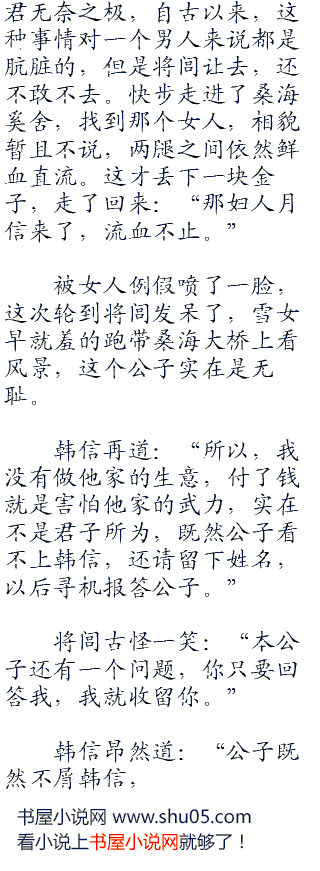 君无奈之极，自古以来，这
种事情对一个男人来说都是
肮脏的，但是将闾让去，还
不敢不去。快步走进了桑海
奚舍，找到那个女人，相貌
暂且不说，两腿之间依然鲜
血直流。这才丢下一块金
子，走了回来：“那妇人月
信来了，流血不止。”
被女人例假喷了一脸，
这次轮到将闾发呆了，雪女
早就羞的跑带桑海大桥上看
风景，这个公子实在是无
耻。
韩信再道：“所以，我
没有做他家的生意，付了钱
就是害怕他家的武力，实在
不是君子所为，既然公子看
不上韩信，还请留下姓名，
以后寻机报答公子。”
将闾古怪一笑：“本公
子还有一个问题，你只要回
答我，我就收留你。”
韩信昂然道：“公子既
然不屑韩信，
书屋小说网 www.shu05.com
看小说上书屋小说网就够了！